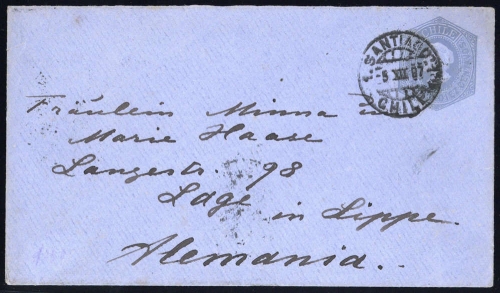 CHILE
SANTIAGO
5 XII 07
CHILE
Fräulein Minna u
Marie Haase
Langestr. 98
Lage in Lippe.
Alemania.